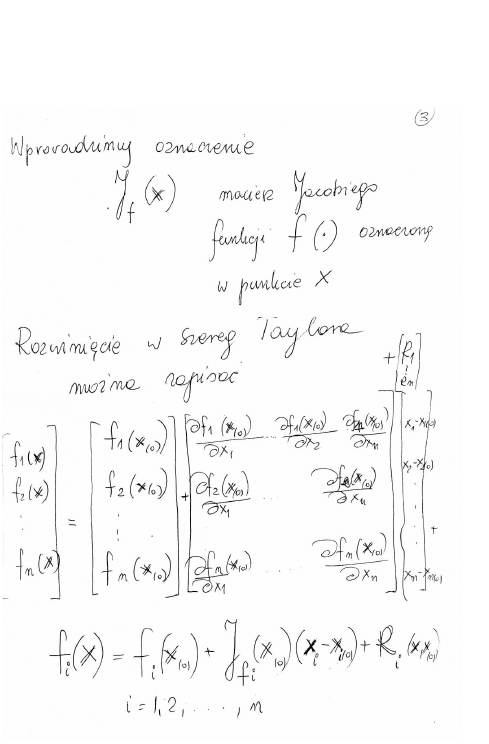 ③
Wprowadzimy oznaczenie
J_f (x) macierz Jacobiego
funkcji f (·) oznaczoną
w punkcie x
Rozwinięcie w szereg Taylora
można zapisać
[f₁(x) f₂(x) ⋮ fₙ(x)] = [f₁(x₍₀₎) f₂(x₍₀₎) ⋮ fₙ(x₍₀₎)] + [∂f₁(x₍₀₎)/∂x₁ ∂f₁(x₍₀₎)/∂x₂ ∂f₁(x₍₀₎)/∂xₙ ; ∂f₂(x₍₀₎)/∂x₁ ... ∂f₂(x₍₀₎)/∂xₙ ; ∂fₙ(x₍₀₎)/∂x₁ ... ∂fₙ(x₍₀₎)/∂xₙ] [x₁-x₁₍₀₎ x₂-x₂₍₀₎ ⋮ xₙ-xₙ₍₀₎] + [R₁ ⋮ Rₙ]
f_i(x) = f_i(x₍₀₎) + J_{f_i}(x₍₀₎)(x_i-x_{i(0)}) + R_i(x,x₍₀₎)
i = 1, 2, . . . . , n